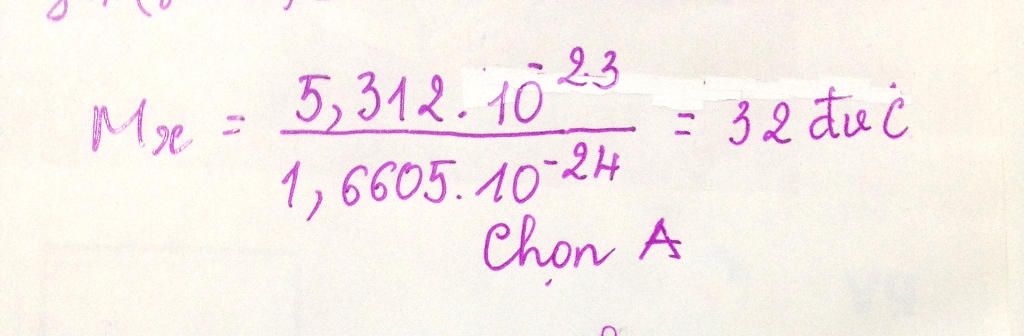 Mx = 5,312.10^-23 / 1,6605.10^-24 = 32 đvC
Chọn A